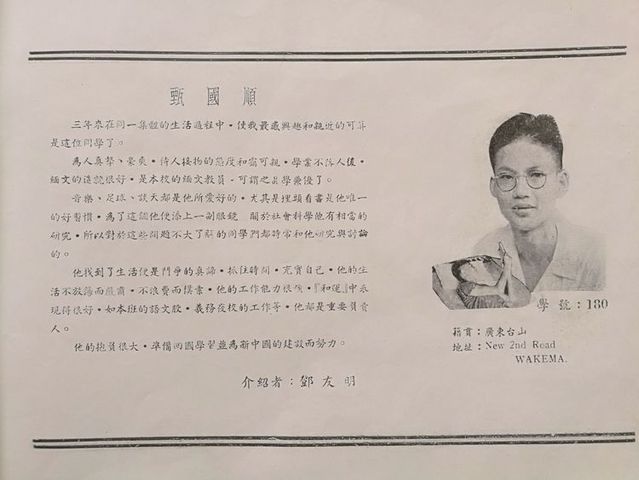 甄國順
三年來在同一集體的生活過程中，使我最感興趣和親近的可算
是這位同學了。
為人真摯、豪爽，待人接物的態度和靄可親，學業不落人後，
緬文的造詣很好，是本校的緬文教員，可謂之品學兼優了。
音樂、足球、談天都是他所愛好的，尤其是埋頭看書是他唯一
的好習慣，為了這個他便添上一副眼鏡 關於社會科學他有相當的
研究，所以對於這些問題不大了解的同學們都時常和他研究與討論
的。
他找到了生活便是鬥爭的真諦，抓住時間，充實自己，他的生
活不放蕩而嚴肅，不浪費而樸素，他的工作能力很強，『和運』中表
現得很好，如本班的語文股，義務夜校的工作等，他都是重要負責
人。
他的抱負很大，準備回國學習並為新中國的建設而努力。
介紹者：鄧友明
學號：180
籍貫：廣東台山
地址：New 2nd Road
WAKEMA.